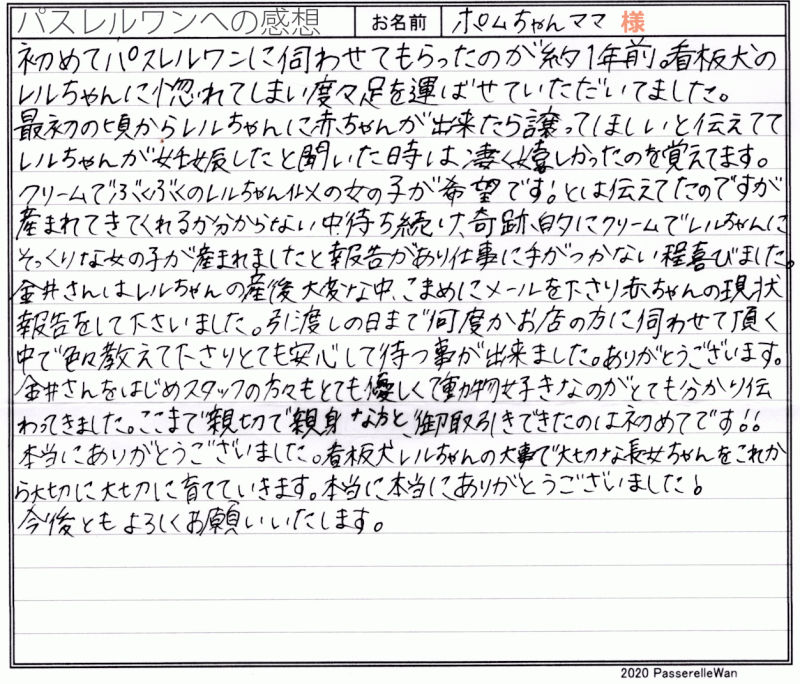 パスレルワンへの感想 お名前 ポムちゃんママ 様
初めてパスレルワンに伺わせてもらったのが約1年前。看板犬の
レルちゃんに惚れてしまい度々足を運ばせていただいてました。
最初の頃からレルちゃんに赤ちゃんが出来たら譲ってほしいと伝えてて
レルちゃんが妊娠したと聞いた時は凄く嬉しかったのを覚えてます。
クリームでぶくぶくのレルちゃん似の女の子が希望です!とは伝えてたのですが
産まれてきてくれるか分からない中待ち続け、奇跡的にクリームでレルちゃんに
そっくりな女の子が産まれましたと報告があり仕事に手がつかない程喜びました。
金井さんはレルちゃんの産後大変な中、こまめにメールを下さり赤ちゃんの現状
報告をして下さいました。引き渡しの日まで何度かお店の方に伺わせて頂く
中で色々教えて下さりとても安心して待つ事が出来ました。ありがとうございます。
金井さんをはじめスタッフの方々もとても優しくて動物好きなのがとても分かり伝
わってきました。ここまで親切で親身な方と御取引きできたのは初めてです!!
本当にありがとうございました。看板犬レルちゃんの大事で大切な長女ちゃんをこれか
ら大切に大切に育てていきます。本当に本当にありがとうございました!
今後ともよろしくお願いいたします。
2020 PasserelleWan